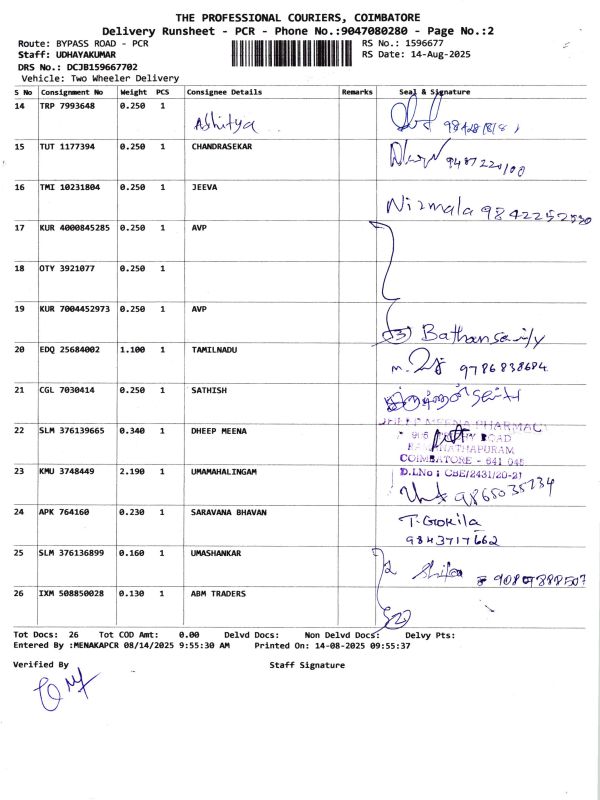 THE PROFESSIONAL COURIERS, COIMBATORE
Delivery Runsheet - PCR - Phone No.:9047080280 - Page No.:2
Route: BYPASS ROAD - PCR RS No.: 1596677
Staff: UDHAYAKUMAR RS Date: 14-Aug-2025
DRS No.: DCJB159667702
Vehicle: Two Wheeler Delivery
S No Consignment No Weight PCS Consignee Details Remarks Seal & Signature
14 TRP 7993648 0.250 1 Ashitya
15 TUT 1177394 0.250 1 CHANDRASEKAR 9487220100
16 TMI 10231804 0.250 1 JEEVA Nirmala 9842252530
17 KUR 4000845285 0.250 1 AVP
18 OTY 3921077 0.250 1
19 KUR 7004452973 0.250 1 AVP (3)
20 EDQ 25684002 1.100 1 TAMILNADU 9786838684
21 CGL 7030414 0.250 1 SATHISH
22 SLM 376139665 0.340 1 DHEEP MEENA DHEEP MEENA PHARMACY
ROAD
RAMANATHAPURAM
COIMBATORE - 641 045
D.LNo : CBE/2431/20-21
23 KMU 3748449 2.190 1 UMAMAHALINGAM 9865035234
24 APK 764160 0.230 1 SARAVANA BHAVAN T. Gokila
9843717662
25 SLM 376136899 0.160 1 UMASHANKAR
26 IXM 508850028 0.130 1 ABM TRADERS (2)
Tot Docs: 26 Tot COD Amt: 0.00 Delvd Docs: Non Delvd Docs: Delvy Pts:
Entered By :MENAKAPCR 08/14/2025 9:55:30 AM Printed On: 14-08-2025 09:55:37
Verified By Staff Signature